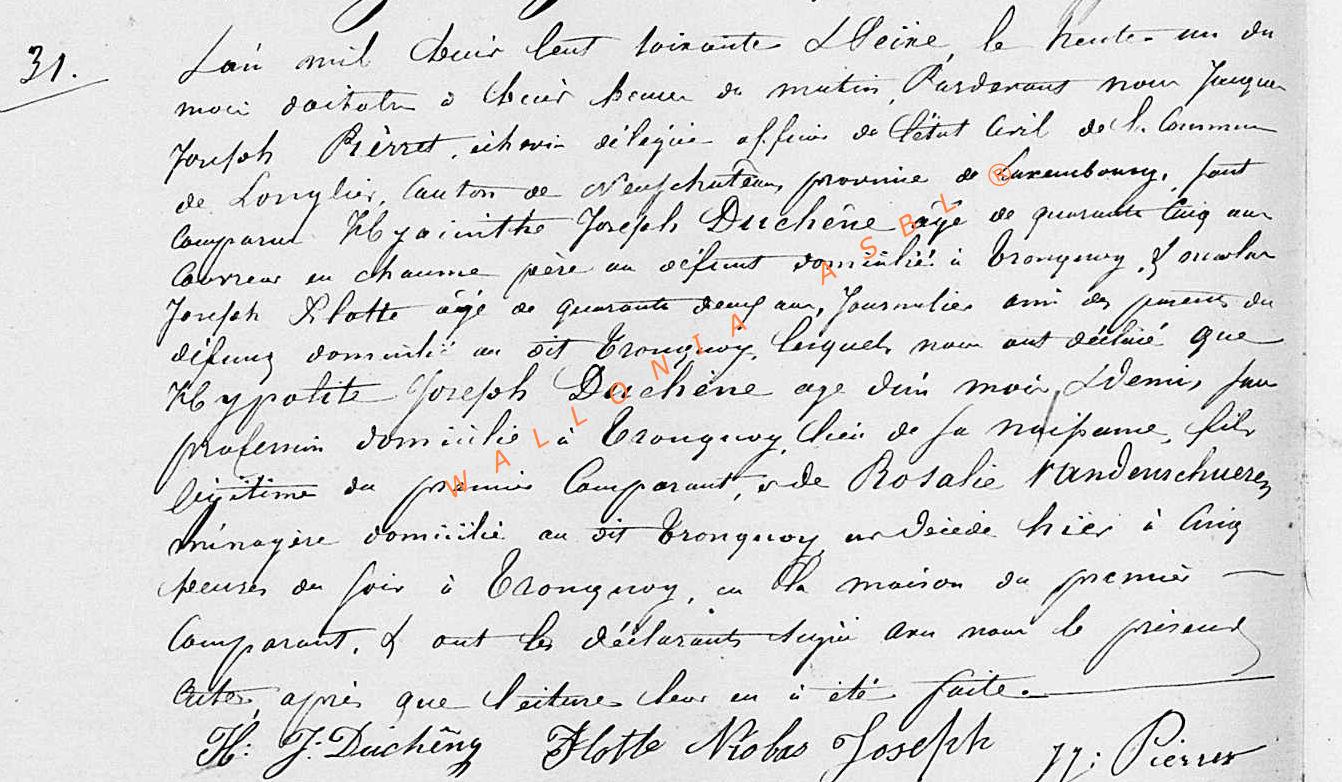 31.
L'an mil huit cent soixante & seize, le trente-un du
mois d'octobre à huit heures du matin, Pardevant nous Jacques
Joseph Pierret, échevin délégué officier de l'état civil de la Commune
de Longlier, Canton de Neufchâteau, province de Luxembourg, sont
Comparus Hyacinthe Joseph Duchêne âgé de quarante cinq ans
Couvreur en chaume père au défunt domicilié à Tronquoy, & 
Joseph Flotte âgé de quarante deux ans, Journalier ami des parents du
défunt domicilié au dit Tronquoy, lesquels nous ont déclaré que
Hypolite Joseph Duchêne age d'un mois & demi, sans
profession domicilié à Tronquoy lieu de sa naissance, fils
légitime du premier Comparant, & de Rosalie Vandenschueren
ménagère domicilié au dit Tronquoy est décédé hier à Cinq
heures du soir à Tronquoy, en la maison du premier
Comparant, & ont les déclarants signé avec nous le présent
acte, après que lecture leur en à été faite.
H: J: Duchêne Flotte Nicolas Joseph JJ: Pierret
WALLONIA ASBL ®